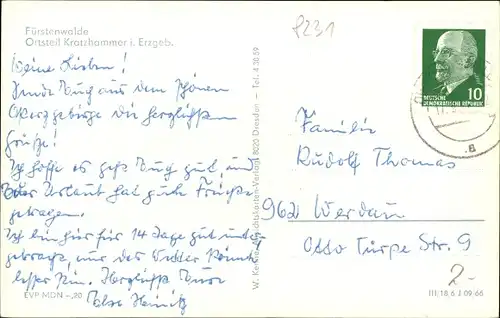 Fürstenwalde
Ortsteil Kratzhammer i. Erzgeb.
P231
Meine Lieben!
Sende Euch aus dem schönen
Osterzgebirge die herzlichsten
Grüße!
Ich hoffe es geht Euch gut, und
Euer Urlaub hat gute Früchte
getragen.
Ich bin hier für 14 Tage gut unter-
gebracht, nur das Wetter könnte
besser sein. Herzlichst Eure
Else
EVP MDN -,20
W. Kenne Ansichtskarten-Verlag 8020 Dresden - Tel. 4 30 59
DEUTSCHE
DEMOKRATISCHE REPUBLIK
10
Familie
Rudolf Thomas
962 Werdau
Otto Türpe Str. 9
2.-
III 18 6 J 09-66